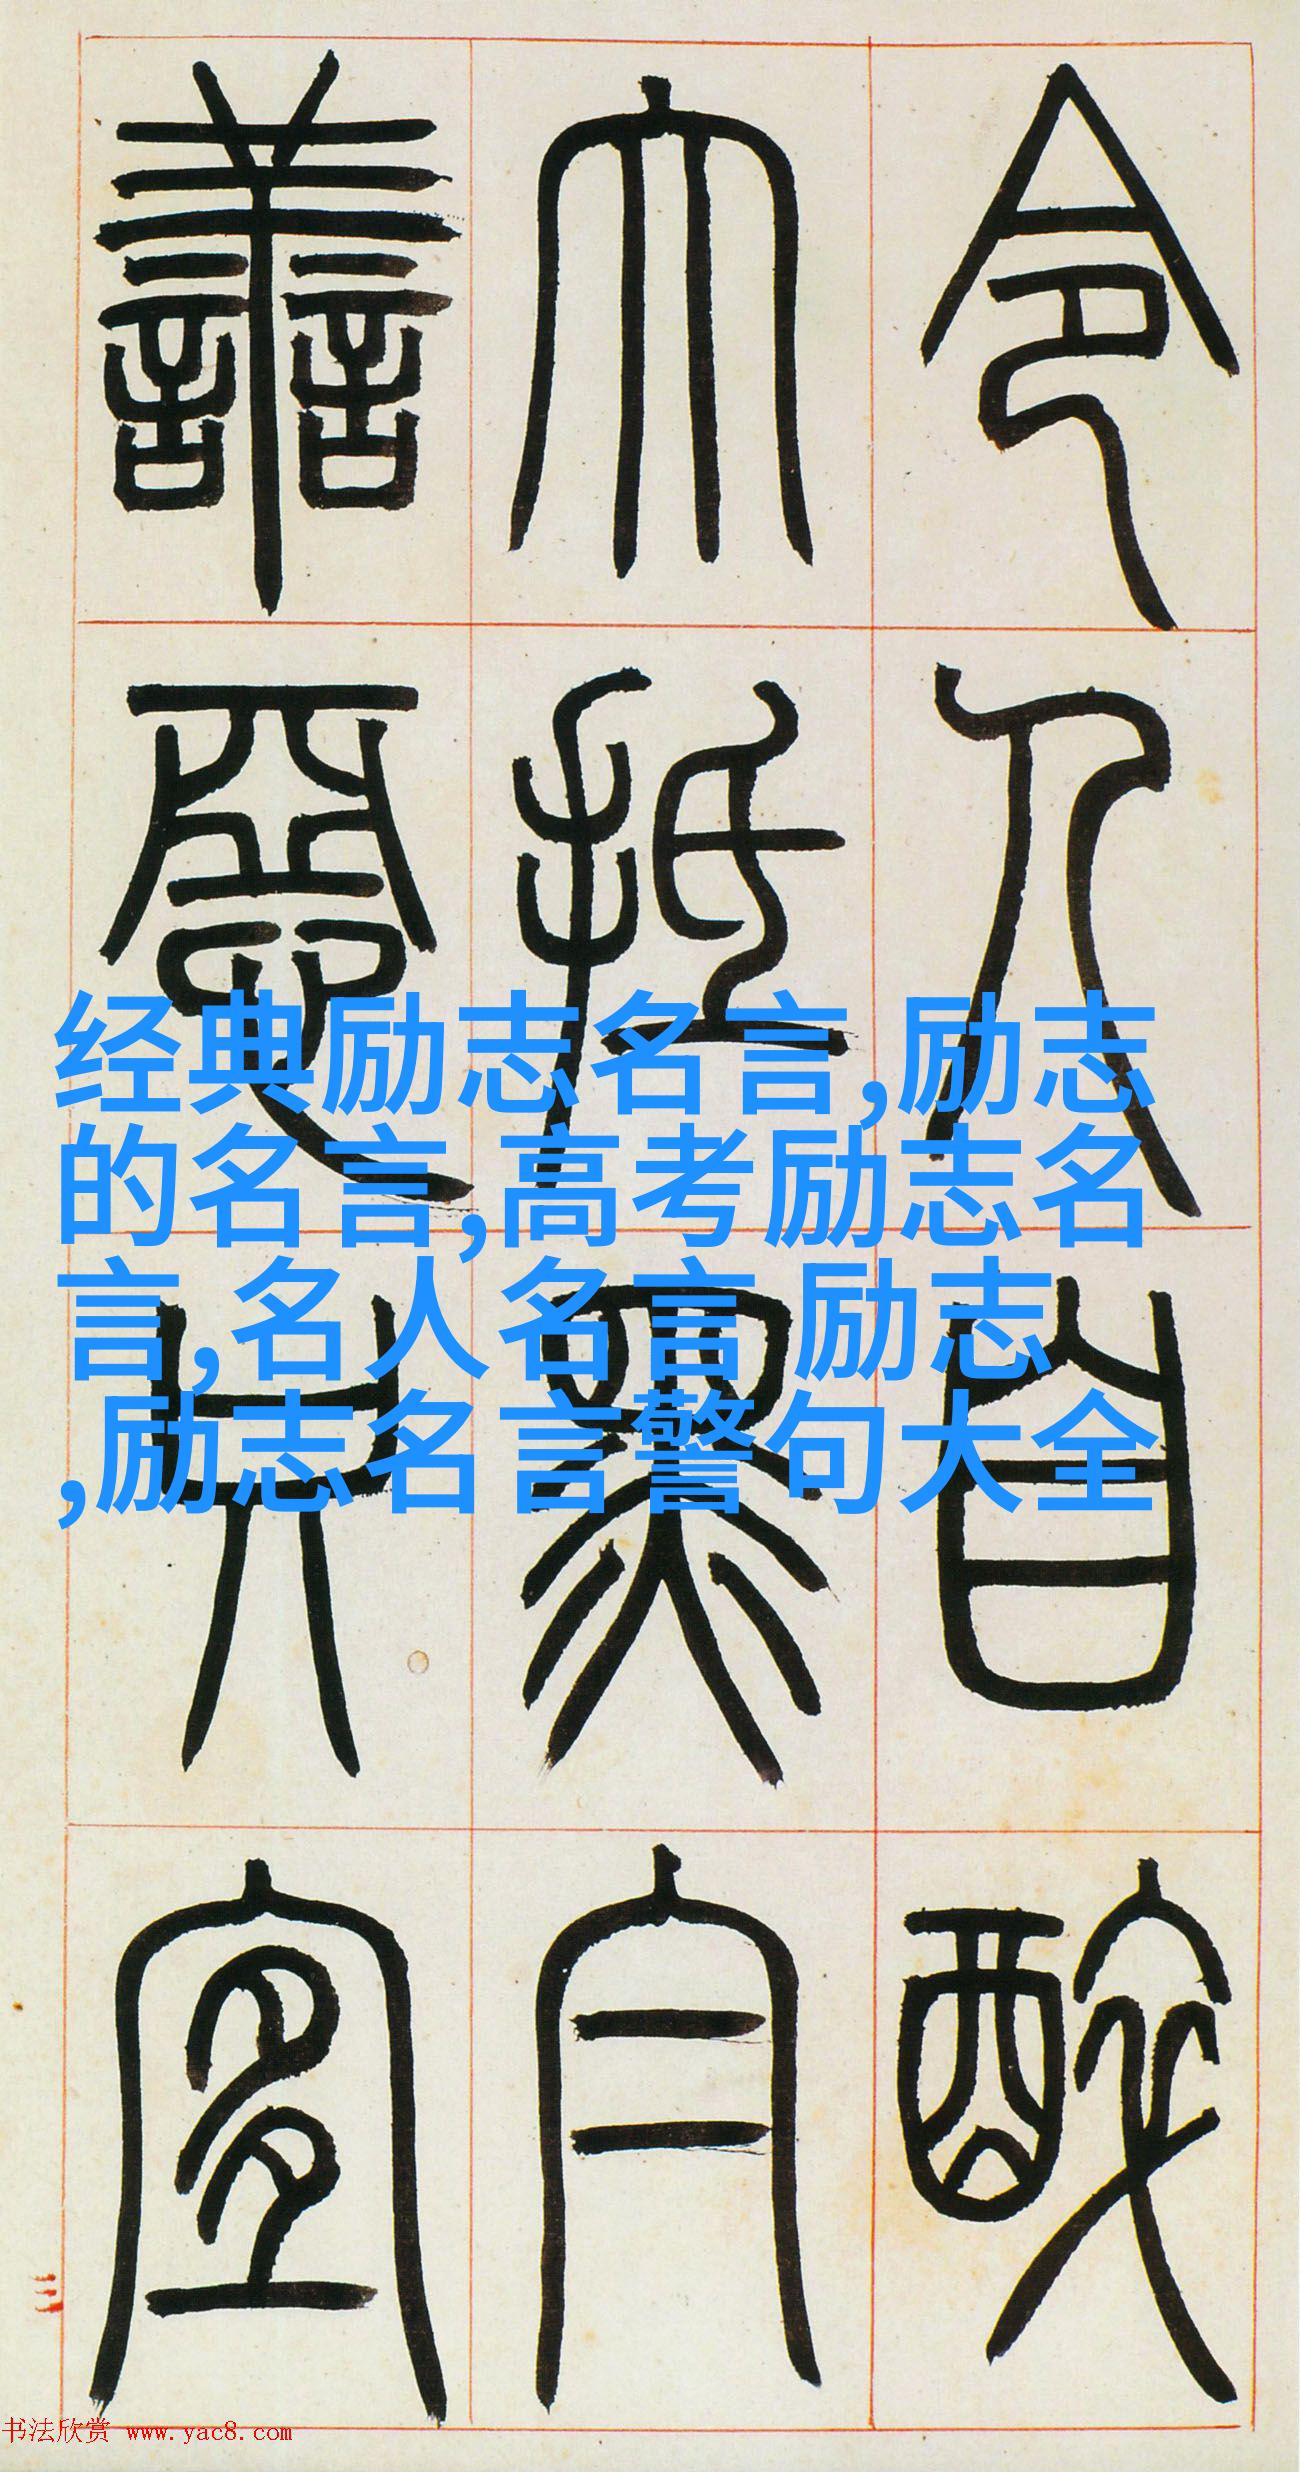 令人自醉
大抵
善宜
经典励志名言,励志
的名言,高考励志名
言,名人名言 励志
,励志名言警句大全
三
书法欣赏 www.yac8.com